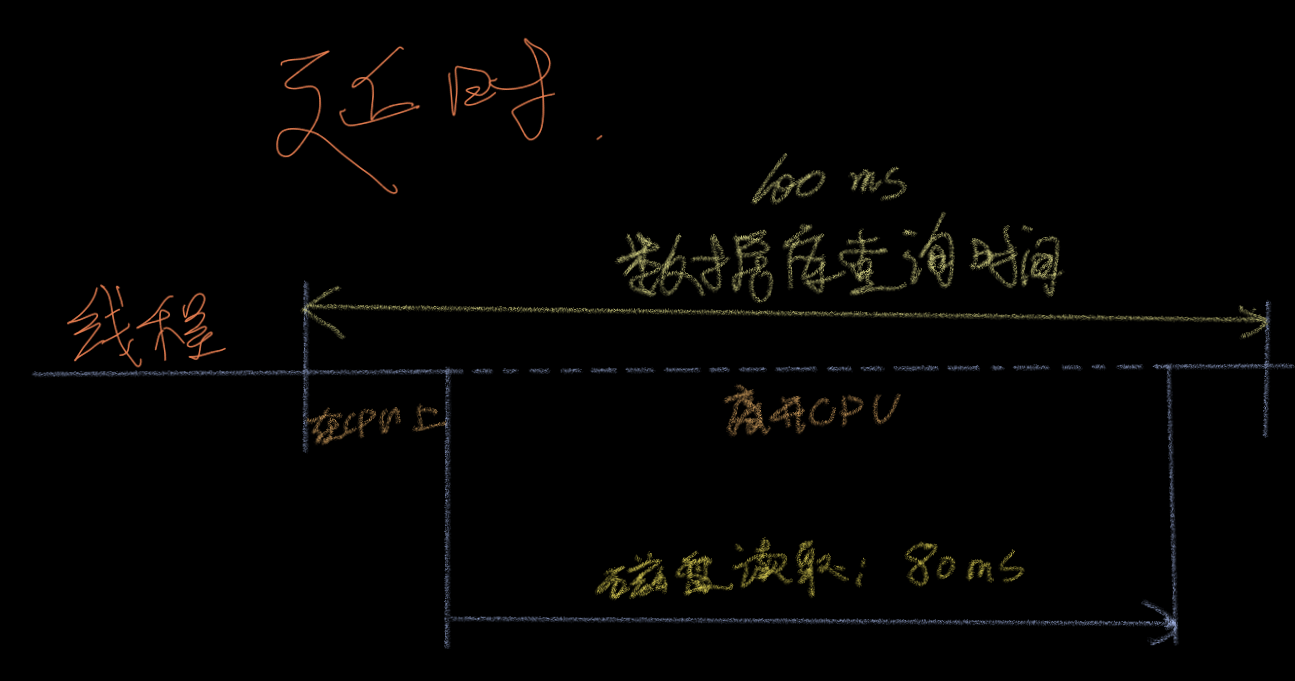 延时.
100 ms
数据库查询时间
线程
在CPU上
离开CPU
磁盘读取: 80ms